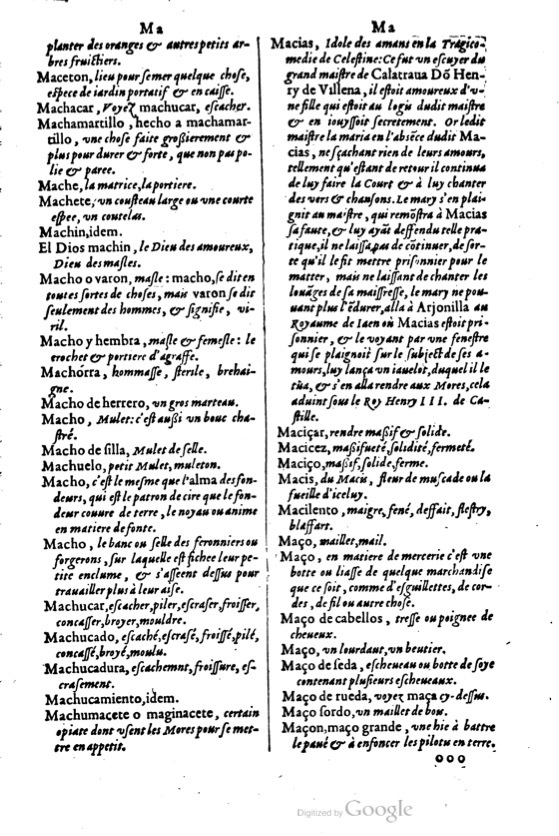 Ma
planter des oranges & autres petits ar-
bres fruictiers.
Maceton, lieu pour semer quelque chose,
espece de iardin portatif & en caisse.
Machacar, Voyez machucar, escacher.
Machamartillo, hecho a machamar-
tillo, vne chose faite großierement &
plus pour durer & forte, que non pas po-
lie & paree.
Mache, la matrice, la portiere.
Machete, vn cousteau large ou vne courte
espee, vn coutelas.
Machin, idem.
El Dios machin, le Dieu des amoureux,
Dieu des masles.
Macho o varon, masle: macho, se dit en
toutes sortes de choses, mais varon se dit
seulement des hommes, & signifie, vi-
ril.
Macho y hembra, masle & femelle: le
crochet & portiere d'agraffe.
Machorra, hommasse, sterile, brehai-
gne.
Macho de herrero, vn gros marteau.
Macho, Mulet: c'est außi vn bouc cha-
stré.
Macho de silla, Mulet de selle.
Machuelo, petit Mulet, muleton.
Macho, c'est le mesme que l'alma des fon-
deurs, qui est le patron de cire que le fon-
deur couure de terre, le noyau ou anime
en matiere de fonte.
Macho, le banc ou selle des feronniers ou
forgerons, sur laquelle est fichee leur pe-
tite enclume, & s'asseent dessus pour
trauailler plus à leur aise.
Machucar, escacher, piler, escraser, froisser,
concasser, broyer, mouldre.
Machucado, escaché, escrasé, froissé, pilé,
concassé, broyé, moulu.
Machucadura, escachemnt, froissure, es-
crasement.
Machucamiento, idem.
Machumacete o maginacete, certain
opiate dont vsent les Mores pour se met-
tre en appetit.
Ma
Macias, Idole des amans en la Tragico-
medie de Celestine: Ce fut vn escuyer du
grand maistre de Calatraua Dō Hen-
ry de Villena, il estoit amoureux d'v-
ne fille qui estoit au logis dudit maistre
& en iouyssoit secretement. Or ledit
maistre la maria en l'absēce dudit Ma-
cias, ne sçachant rien de leurs amours,
tellement qu'estant de retour il continua
de luy faire la Court & à luy chanter
des vers & chansons. Le mary s'en plai-
gnit au maistre, qui remōstra à Macias
sa faute, & luy ayāt deffendu telle pra-
tique, il ne laissa pas de cōtinuer, de sor-
te qu'il le fit mettre prisonnier pour le
matter, mais ne laissant de chanter les
louāges de sa maistresse, le mary ne pou-
uant plus l'ēdurer, alla à Arjonilla au
Royaume de Iaen où Macias estoit pri-
sonnier, & le voyant par vne fenestre
qui se plaignoit sur le subject de ses a-
mours, luy lança vn iauelot, duquel il le
tüa, & s'en alla rendre aux Mores, cela
aduint sous le Roy Henry III. de Ca-
stille.
Maciçar, rendre maßif & solide.
Macicez, maßifueté, solidité, fermeté.
Maciço, maßif, solide, ferme.
Macis, du Macis, fleur de muscade ou la
fueille d'iceluy.
Macilento, maigre, fené, deffait, flestry,
blaffart.
Maço, maillet, mail.
Maço, en matiere de mercerie c'est vne
botte ou liasse de quelque marchandise
que ce soit, comme d'esguillettes, de cor-
des, de fil ou autre chose.
Maço de cabellos, tresse ou poignee de
cheueux.
Maço, vn lourdaut, vn beutier.
Maço de seda, escheueau ou botte de soye
contenant plusieurs escheueaux.
Maço de rueda, voyez maça cy-dessus.
Maço sordo, vn maillet de bou.
Maçon, maço grande, vne hie à battre
le paué & à enfoncer les pilotu en terre.
ooo
Digitized by Google